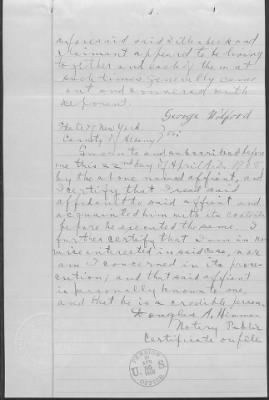 aforesaid said Witherbeck and
Claimant appeared to be living
together and each of them at
such times generally came
out and conversed with
deponent.
George Wilford
State of New York
County of Albany } SS
Sworn to and subscribed before
me this 22nd day of April A.D. 1905,
by the above named affiant, and
I certify that I read said
affidavit to said affiant and
acquainted him with its contents
before he executed the same. I
further certify that I am in no
wise interested in said case, nor
am I concerned in its prose-
cution; and that said affiant
is personally known to me,
and that he is a credible person.
Douglas A. Hinman
Notary Public
Certificate on file
PENSION
U.S.
APR
OFFICE